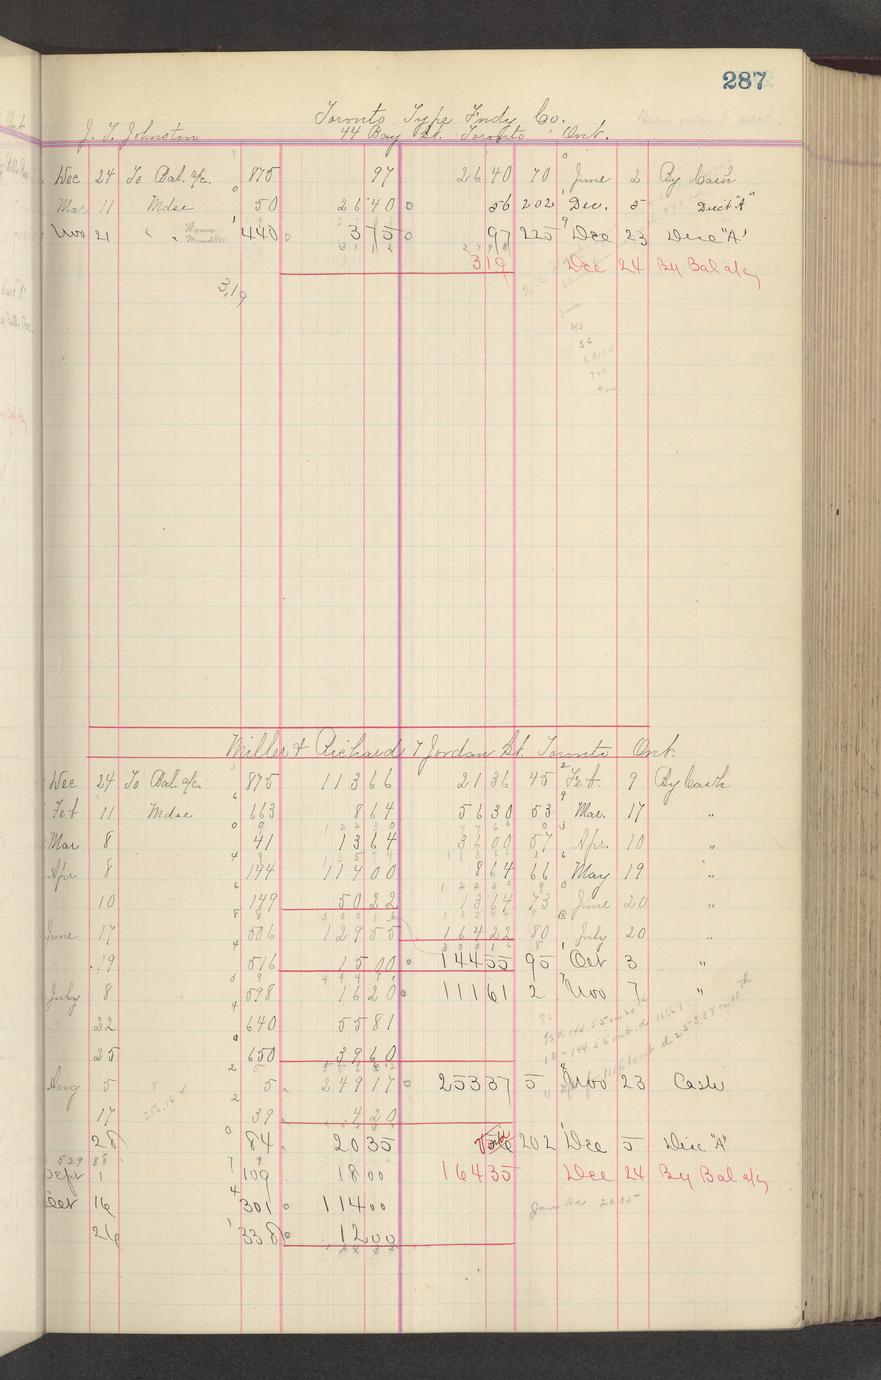 287
Toronto Type Fndy Co.
J. T. Johnston 44 Bay St. Toronto, Ont.
Dec 24 To Bal. a/c. 875 97 26 40 70 June 2 By Cash
Mar 11 Mdse 50 26 40 56 202 Dec. 5 Disct "A"
Nov 21 " " 440 3 75 97 225 Dec 23 Disc "A"
3 19 Dec 24 By Bal a/c
3,19
Miller & Richard 7 Jordan St. Toronto Ont.
Dec 24 To Bal. a/c. 875 113 66 21 36 45 Feb. 9 By Cash
Feb 11 Mdse 663 8 64 56 30 53 Mar. 17 "
Mar 8 41 13 64 36 00 57 Apr. 10 "
Apr 8 144 114 00 8 64 66 May 19 "
10 149 50 22 13 64 73 June 20 "
June 17 506 129 55 164 22 80 July 20 "
19 516 15 00 144 55 95 Oct 3 "
July 8 598 16 20 111 61 2 Nov 7 "
22 640 55 81
25 650 39 60
Aug 5 5 249 17 253 37 5 Nov 23 Cash
17 39 4 20
28 84 20 35 202 Dec 5 Disc "A"
Sept 1 109 18 00 164 35 Dec 24 By Bal a/c
Oct 16 301 114 00
26 338 12 00